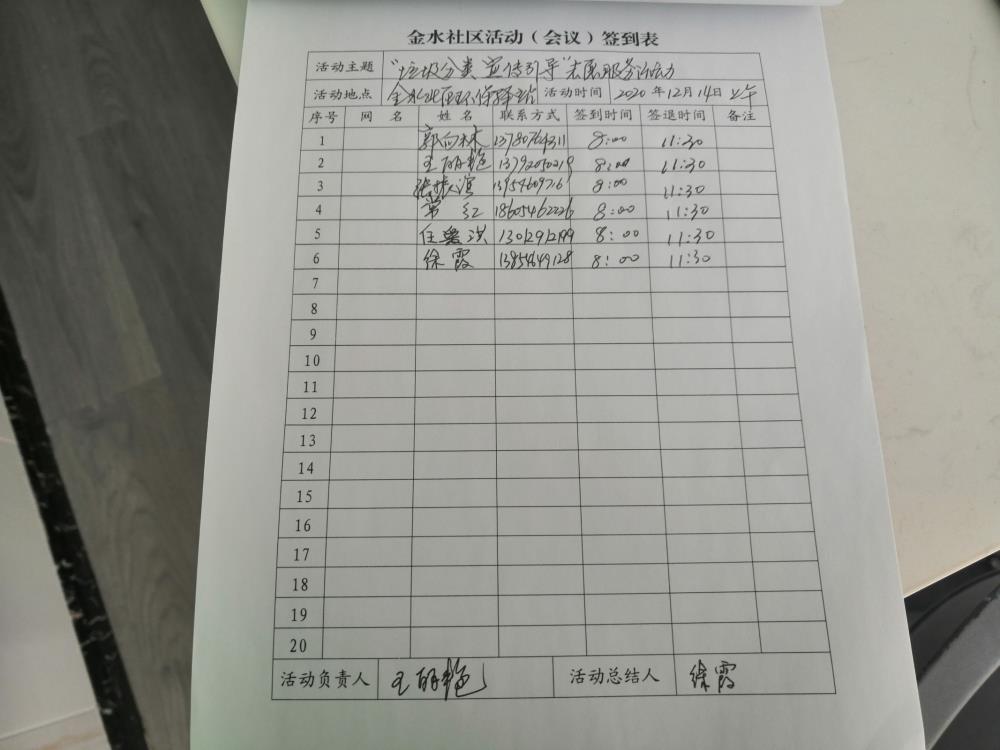 金水社区活动(会议)签到表
活动主题 "垃圾分类 宣传引导"志愿服务活动
活动地点 金水社区环保驿站 活动时间 2020年12月14日上午
序号 网 名 姓 名 联系方式 签到时间 签退时间 备注
1 郭向林 13780764311 8:00 11:30
2 王丽艳 13792050219 8:00 11:30
3 张振滨 8:00 11:30
4 常 红 18605462226 8:00 11:30
5 任 洪 13012912199 8:00 11:30
6 徐霞 13854649128 8:00 11:30
7
8
9
10
11
12
13
14
15
16
17
18
19
20
活动负责人 王丽艳 活动总结人 徐霞